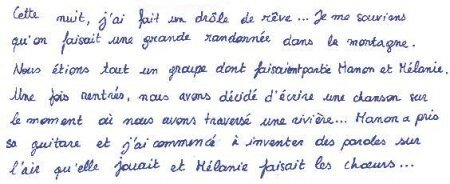 Cette nuit, j'ai fait un drôle de rêve... Je me souviens
qu'on faisait une grande randonnée dans la montagne.
Nous étions tout un groupe dont faisaient partie Manon et Mélanie.
Une fois rentrés, nous avons décidé d'écrire une chanson sur
le moment où nous avons traversé une rivière... Manon a pris
sa guitare et j'ai commencé à inventer des paroles sur
l'air qu'elle jouait et Mélanie faisait les chœurs...